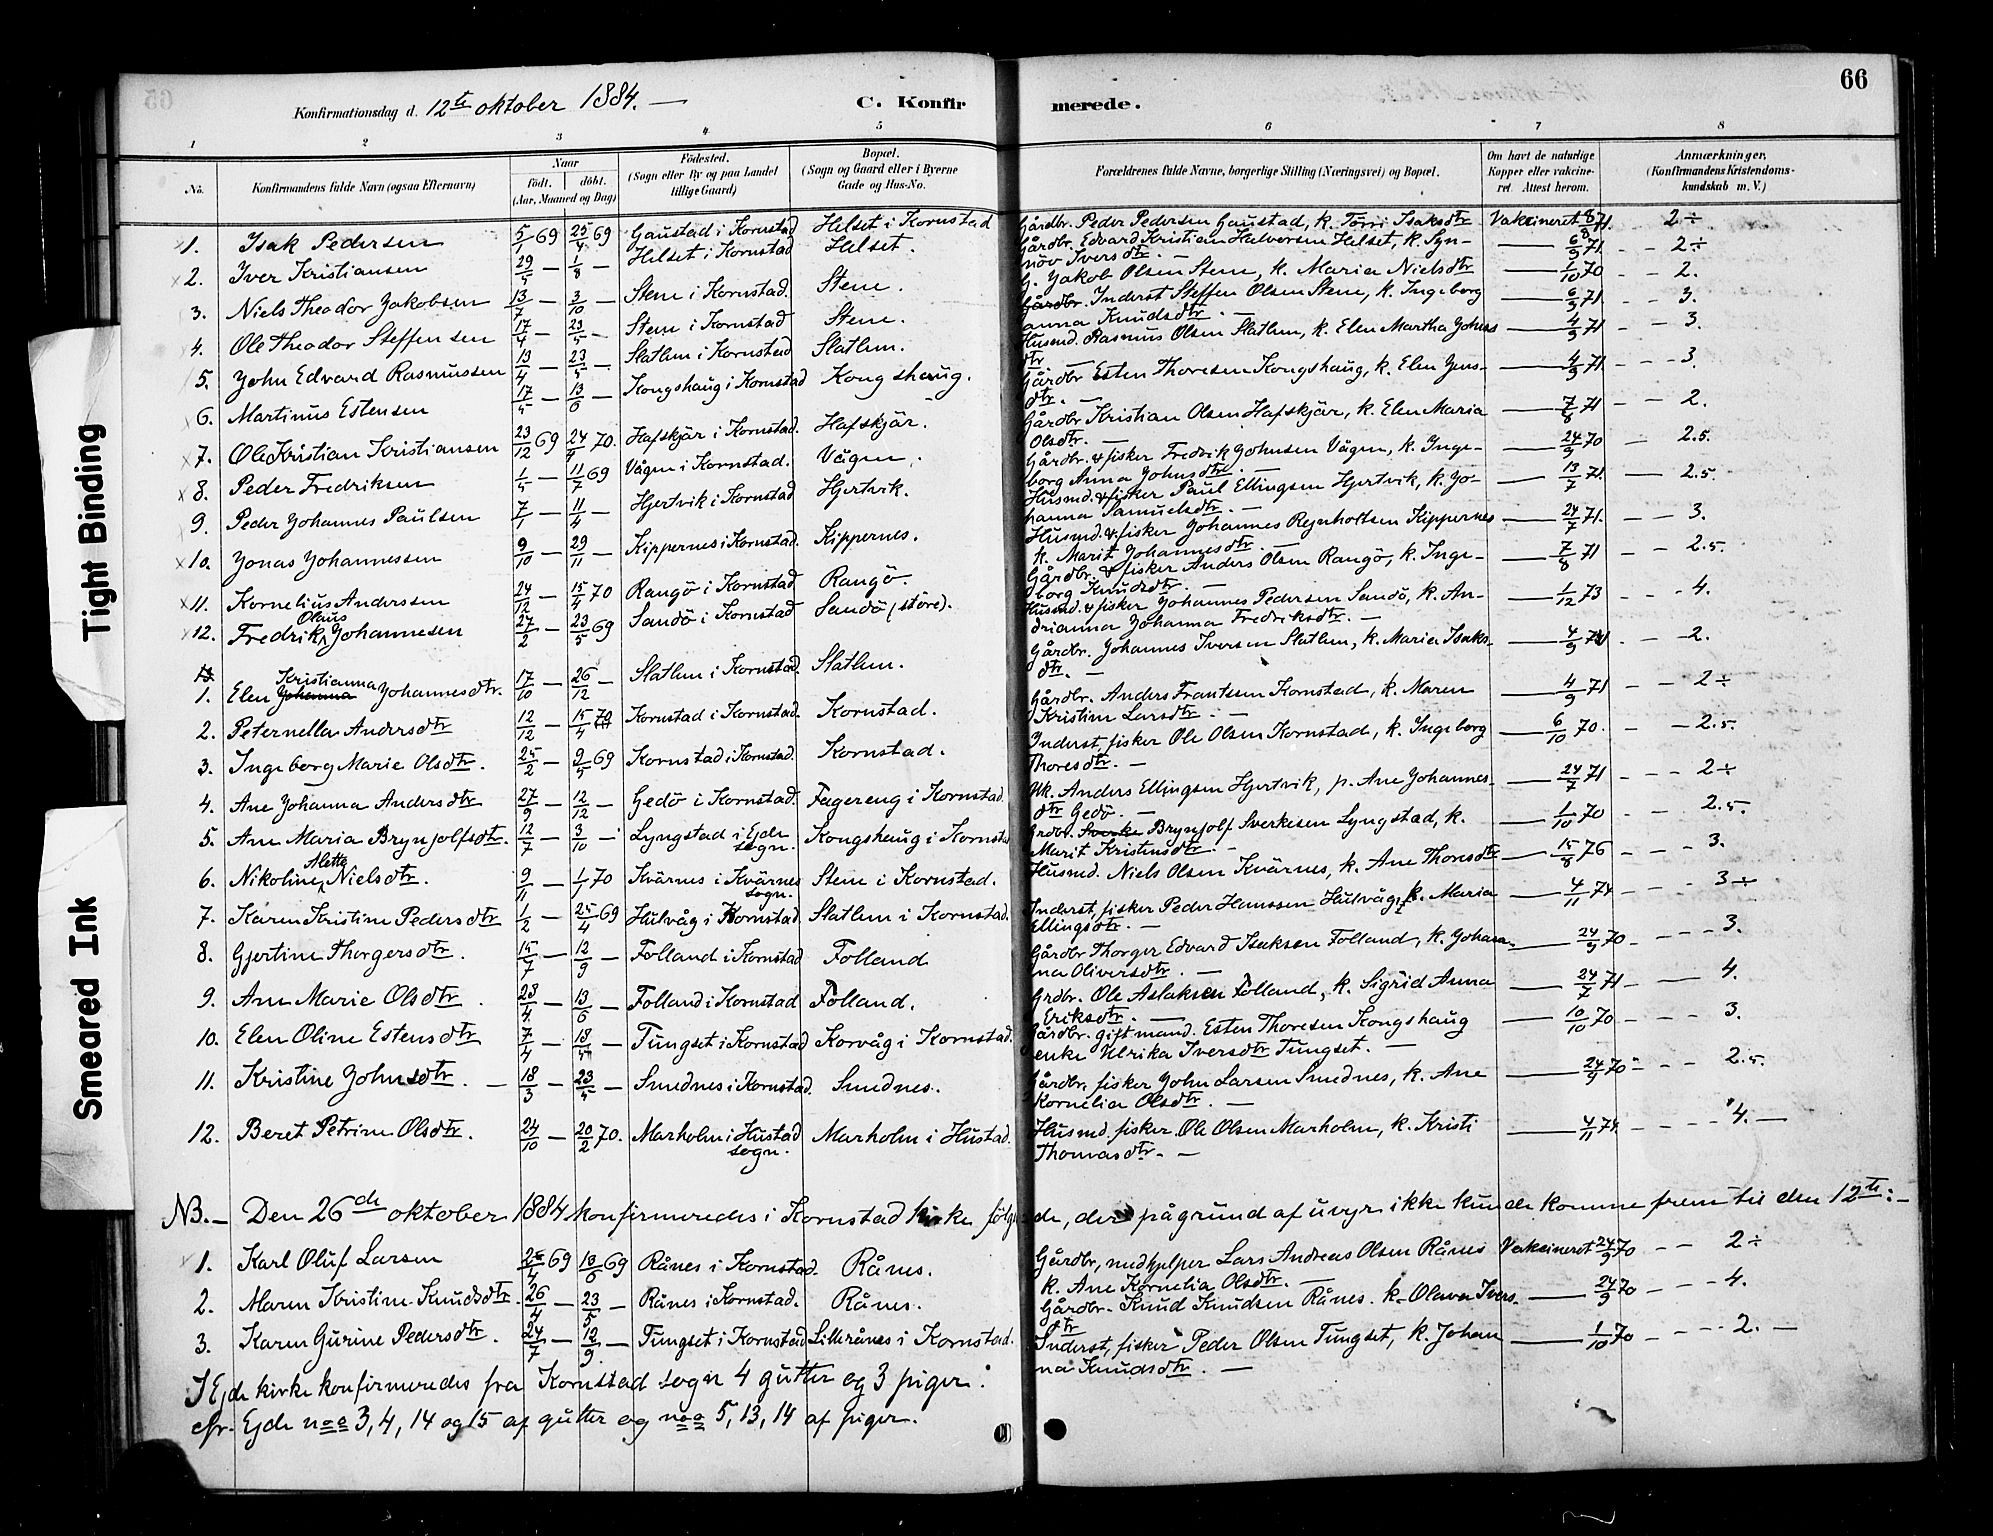 66
Konfirmationsdag d. 12te oktober 1884. —
C. Konfirmerede.
1 2 3 4 5 6 7 8
No. Konfirmandens fulde Navn (ogsaa Efternavn) Naar født. døbt. (Aar, Maaned og Dag) Fødested. (Sogn eller By og paa Landet tillige Gaard) Bopæl. (Sogn og Gaard eller i Byerne Gade og Hus-No. Forældrenes fulde Navne, borgerlige Stilling (Næringsvei) og Bopæl. Om havt de naturlige Kopper eller vakcineret. Attest herom. Anmærkninger. (Konfirmandens Kristendomskundskab m. V.)
1. Isak Pedersen 5/1 69 25/4 69 Gaustad i Kornstad Helset i Kornstad Gårdbr. Peder Pedersen Gaustad, k. Torri Isaksdtr Vakcineret 8/8 71. 2÷
2. Iver Kristiansen 29/5 — 1/8 — Helset i Kornstad Helset. Gårdbr. Edvard Kristian Halversen Helset, k. Synnöv Iversdtr. — 6/9 71 - - 2÷
3. Niels Theodor Jakobsen 13/7 — 3/10 — Stene i Kornstad. Stene. G. Jakob Olsen Stene, k. Maria Nielsdtr — 1/10 70 - - 2.
4. Ole Theodor Steffensen 17/4 — 23/5 — Stene i Kornstad Stene. Gårdbr. Inderst Steffen Olsen Stene, k. Ingeborganna Knudsdtr. — 6/9 71 - - 3.
5. John Edvard Rasmussen 13/4 — 23/5 — Slatlem i Kornstad Slatlem. Husmd. Rasmus Olsen Slatlem, k. Elen Martha Johnsdtr. — 4/9 71 - - 3.
6. Martinus Estensen 17/5 — 13/6 — Kongshaug i Kornstad Kongshaug. Gårdbr Esten Thoresen Kongshaug, k. Elen Jensdtr. — 4/9 71. - - - 3
7. Ole Kristian Kristiansen 23/12 69 24/4 70. Hafskjär i Kornstad. Hafskjär. Gårdbr Kristian Olsen Hafskjär, k. Elen Maria Olsdtr. — 7/8 71 - - 2.
8. Peder Fredriksen 1/5 — 11/7 69 Vågen i Kornstad. Vågen. Gårdbr. & fisker Fredrik Johnsen Vågen, k. Ingeborg Anna Johnsdtr. — 24/9 70 — 2.5.
9. Peder Johannes Paulsen 7/1 — 11/4 — Hjertvik i Kornstad Hjertvik. Husmd. & fisker Paul Ellingsen Hjertvik, k. Johanna Samuelsdtr. — 13/7 71. — - 2.5.
10. Jonas Johannessen 9/10 — 29/11 — Kippernes i Kornstad. Kippernes. Husmd. & fisker Johannes Reinholtsen Kippernes k. Marit Johannesdtr. — 24/7 71. - — 3.
11. Kornelius Andersen 24/12 — 15/4 70 Rangö i Kornstad Rangö. Gårdbr. & fisker Anders Olsen Rangö, k. Ingeborg Knudsdtr. — 7/8 71 - - 2.5.
12. Fredrik Olaus Johannesen 27/2 — 23/5 69 Sandö i Kornstad Sandö (störe). Husmd. & fisker Johannes Pedersen Sandö, k. Andrianna Johanna Fredriksdtr. — 1/12 73 - - - 4.
1. Elen Johanna Kristianna Johannesdtr. 17/10 — 26/12 — Slatlem i Kornstad Slatlem. Gårdbr. Johannes Iversen Slatlem, k. Maria Isaksdtr. — 4/9 71 - - 2.
2. Peternella Andersdtr 12/12 — 15/4 70 Kornstad i Kornstad. Kornstad. Gårdbr. Anders Frantsen Kornstad, k. Maren Kristine Larsdtr. — 4/9 71 - - 2÷
3. Ingeborg Marie Olsdtr. 25/2 — 9/5 69 Kornstad i Kornstad. Kornstad. Inderst, fisker Ole Olsen Kornstad, k. Ingeborg Thoresdtr. — 6/10 70. — 2.5.
4. Ane Johanna Andersdtr 27/9 — 12/12 — Gedö i Kornstad. Fagereng i Kornstad. Uk. Anders Ellingsen Hjertvik, p. Ane Johannesdtr Gedö. — 24/7 71 - - - 2÷
5. Ane Maria Brynjolfsdtr. 12/7 — 3/10 — Lyngstad i Ejde sogn. Kongshaug i Kornstad Grdbr. Sverke Brynjolf Sverkesen Lyngstad, k. Marit Kristensdtr. — 1/10 70 - - - 2.5.
6. Nikoline Alette Nielsdtr. 9/11 — 1/1 70 Kvärnes i Kvärnes sogn. Stene i Kornstad. Husmd. Niels Olsen Kvärnes, k. Ane Thoresdtr — 15/8 76 - - - 3.
7. Karen Kristine Pedersdtr 1/2 — 25/4 69 Hulvåg i Kornstad Slatlem i Kornstad. Inderst, fisker Peder Hanssen Hulvåg, k. Maria Ellingsdtr. — 4/11 74 - - - 3÷
8. Gjertine Thorgersdtr. 15/7 — 12/9 — Folland i Kornstad Folland Gårdbr Thorger Edvard Isaksen Folland, k. Johanna Oliversdtr. — 24/9 70 - - - 3.
9. Ane Marie Olsdtr. 23/4 — 13/6 — Folland i Kornstad Folland. Grdbr. Ole Aslaksen Folland, k. Sigrid Anna Eriksdtr. — 24/7 71 - — 4.
10. Elen Oline Estensdtr 7/4 — 18/5 — Tungset i Kornstad Korvåg i Kornstad. Gårdbr. gift mand. Esten Thoresen Kongshaug enke Ulrika Iversdtr Tungset. — 10/10 70 - - - 3.
11. Kristine Johnsdtr. — 18/3 — 23/5 — Smednes i Kornstad. Smednes. Gårdbr, fisker John Larsen Smednes, k. Ane Kornelia Olsdtr. — 24/9 70 - - - 2.5.
12. Beret Petrine Olsdtr. 24/10 — 20/2 70. Marholm i Hustad sogn. Marholm i Hustad. Husmd. fisker Ole Olsen Marholm, k. Kristi Thomasdtr. — 4/11 74. - - - - 4. —
NB. — Den 26de oktober 1884 konfirmeredes i Kornstad kirke følgende, der på grund af uveir ikke kunde komme frem til den 12te: —
1. Karl Oluf Larsen 25/4 69 13/6 69 Rånes i Kornstad. Rånes. Gårdbr, medhjelper Lars Andreas Olsen Rånes k. Ane Kornelia Olsdtr. — Vakcineret 24/9 70 - - 2÷
2. Maren Kristine Knudsdtr. 26/4 — 23/5 — Rånes i Kornstad. Rånes. Gårdbr. Knud Knudsen Rånes. k. Olava Iversdtr — 24/9 70 - - - 4.
3. Karen Gurine Pedersdtr. 24/7 — 12/9 — Tungset i Kornstad Lillerånes i Kornstad. Inderst, fisker Peder Olsen Tungset, k. Johanna Knudsdtr. — 1/10 70 - - - 2. —
I Ejde kirke konfirmeredes fra Kornstad sogn 4 gutter og 3 piger:
cfr. Ejde nos 3, 4, 14 og 15 af gutter og nos 5, 13, 14 af piger.
Tight Binding
Smeared Ink